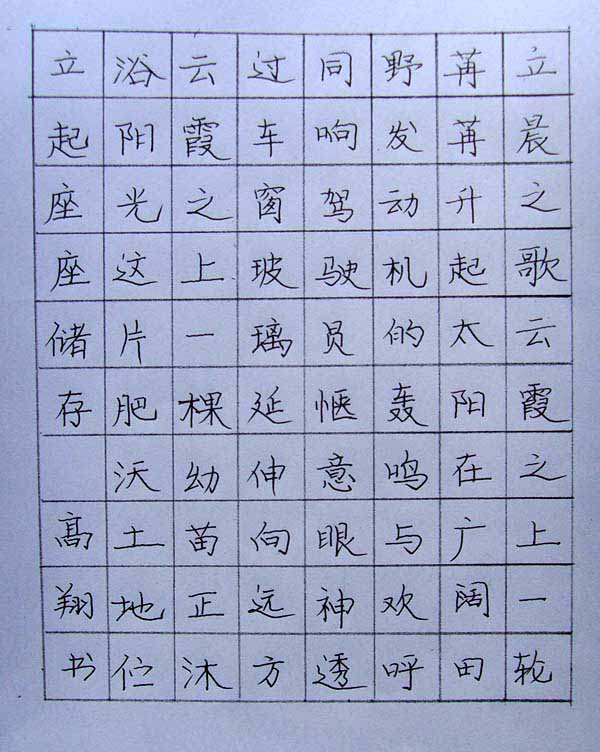 立晨之歌云霞之上一轮
苒苒升起太阳在广阔田
野发动机的轰鸣与欢呼
同响驾驶员惬意眼神透
过车窗玻璃延伸向远方
云霞之上一棵幼苗正沐
浴阳光这片肥沃土地伫
立起座座储存 高翔书